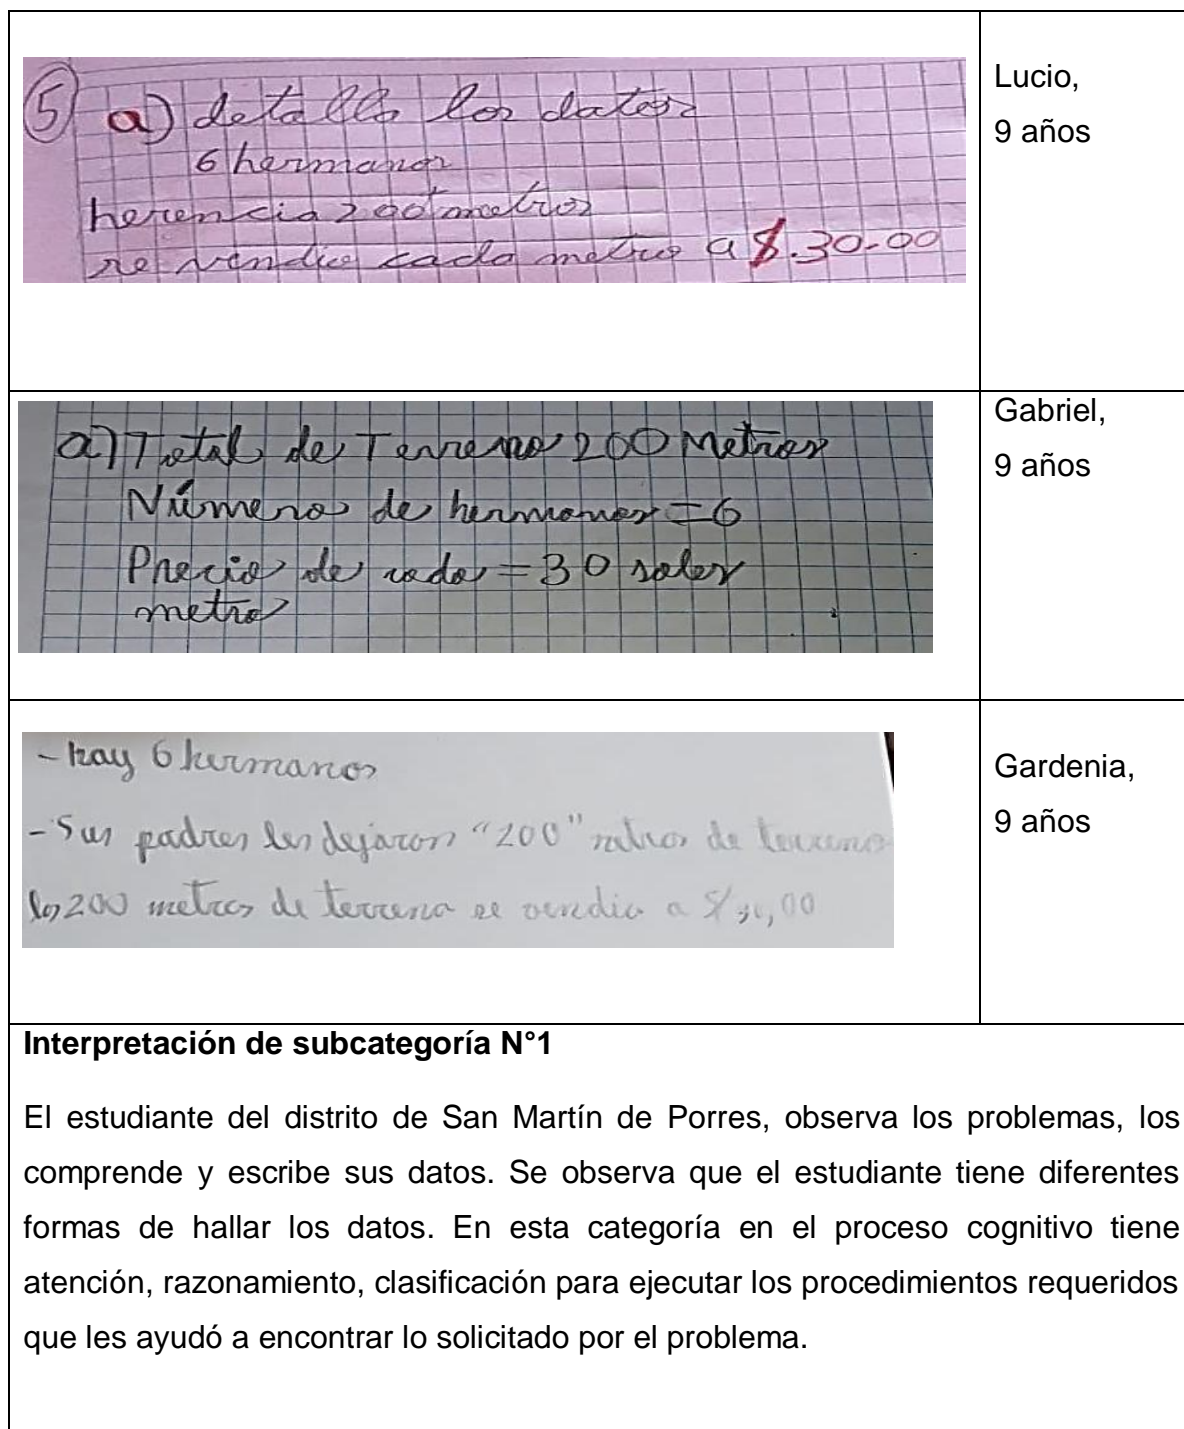 5 a) detallo los datos
6 hermanos
herencia 200 metros
se vendio cada metro a $.30.00
Lucio,
9 años
a) Total de Terreno 200 Metros
Número de hermanos = 6
Precio de cada = 30 soles
metro
Gabriel,
9 años
- hay 6 hermanos
- Sus padres les dejaron "200" metros de terreno
los 200 metros de terreno se vendio a S/30,00
Gardenia,
9 años
Interpretación de subcategoría N°1
El estudiante del distrito de San Martín de Porres, observa los problemas, los
comprende y escribe sus datos. Se observa que el estudiante tiene diferentes
formas de hallar los datos. En esta categoría en el proceso cognitivo tiene
atención, razonamiento, clasificación para ejecutar los procedimientos requeridos
que les ayudó a encontrar lo solicitado por el problema.